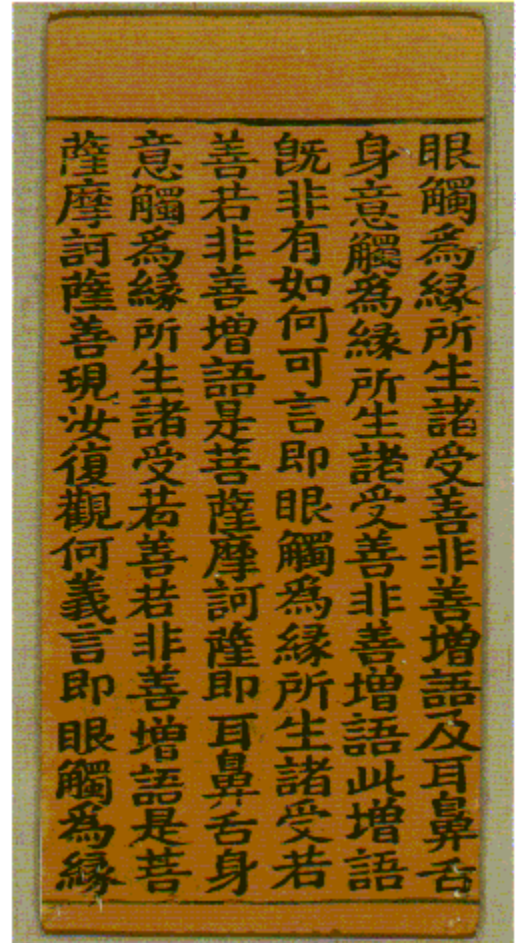 眼觸爲緣所生諸受善非善增語及耳鼻舌
身意觸爲緣所生諸受善非善增語此增語
既非有如何可言即眼觸爲緣所生諸受若
善若非善增語是菩薩摩訶薩即耳鼻舌身
意觸爲緣所生諸受若善若非善增語是菩
薩摩訶薩善現汝復觀何義言即眼觸爲緣